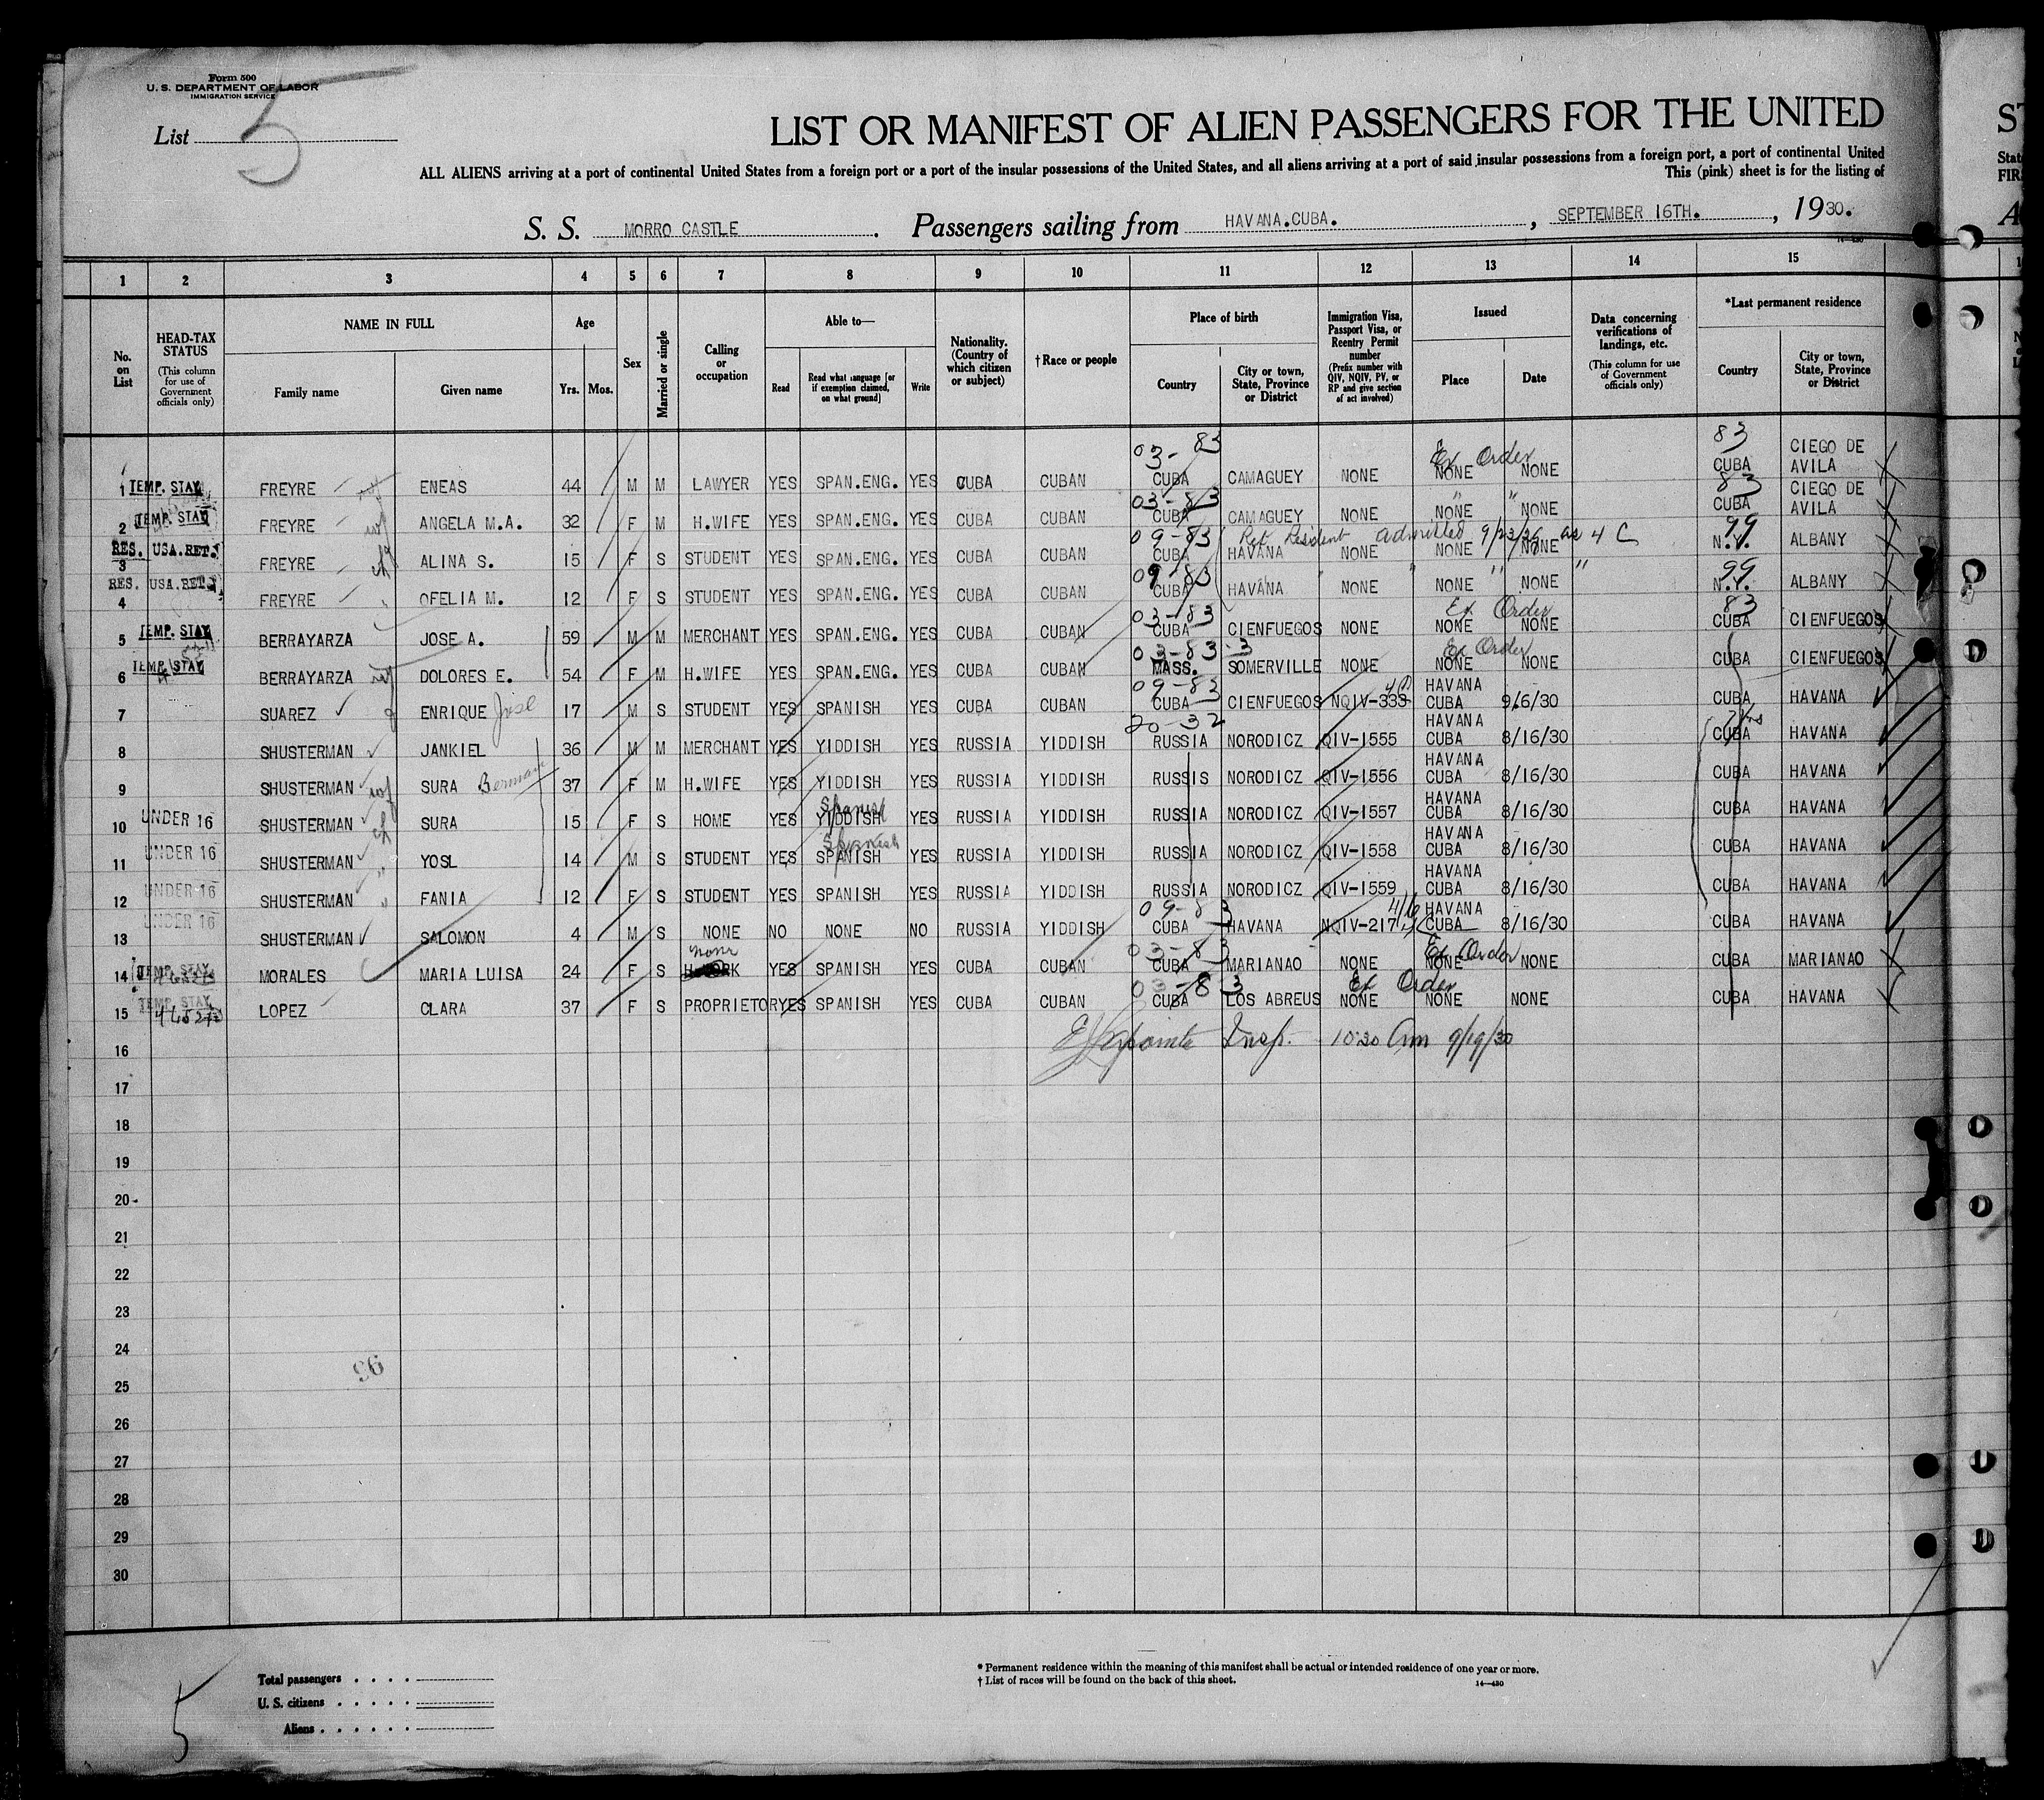 Form 500
U. S. DEPARTMENT OF LABOR
IMMIGRATION SERVICE
List 5
LIST OR MANIFEST OF ALIEN PASSENGERS FOR THE UNITED
ALL ALIENS arriving at a port of continental United States from a foreign port or a port of the insular possessions of the United States, and all aliens arriving at a port of said insular possessions from a foreign port, a port of continental United
This (pink) sheet is for the listing of
S. S. MORRO CASTLE. Passengers sailing from HAVANA.CUBA. , SEPTEMBER 16TH. , 1930.
14-430
1 2 3 4 5 6 7 8 9 10 11 12 13 14 15
No. on List
HEAD-TAX STATUS (This column for use of Government officials only)
NAME IN FULL
Family name Given name
Age
Yrs. Mos.
Sex
Married or single
Calling or occupation
Able to—
Read
Read what language [or if exemption claimed, on what ground]
Write
Nationality. (Country of which citizen or subject)
†Race or people
Place of birth
Country
City or town, State, Province or District
Immigration Visa, Passport Visa, or Reentry Permit number (Prefix number with QIV, NQIV, PV, or RP and give section of act involved)
Issued
Place Date
Data concerning verifications of landings, etc. (This column for use of Government officials only)
*Last permanent residence
Country
City or town, State, Province or District
03-83 Ex Order 83
1 TEMP. STAY FREYRE ENEAS 44 M M LAWYER YES SPAN.ENG. YES CUBA CUBAN CUBA CAMAGUEY NONE NONE NONE CUBA CIEGO DE AVILA
03-83 " " 83
2 TEMP. STAY FREYRE wf ANGELA M.A. 32 F M H.WIFE YES SPAN.ENG. YES CUBA CUBAN CUBA CAMAGUEY NONE NONE NONE CUBA CIEGO DE AVILA
09-83 Ret Resident admitted as 4 C 99
3 RES. USA.RET. FREYRE ch ALINA S. 15 F S STUDENT YES SPAN.ENG. YES CUBA CUBAN CUBA HAVANA NONE NONE NONE N.Y. ALBANY
09-83 " " " " 99
4 RES. USA.RET. FREYRE " OFELIA M. 12 F S STUDENT YES SPAN.ENG. YES CUBA CUBAN CUBA HAVANA NONE NONE NONE N.Y. ALBANY
03-83 Ex Order 83
5 TEMP. STAY BERRAYARZA JOSE A. 59 M M MERCHANT YES SPAN.ENG. YES CUBA CUBAN CUBA CIENFUEGOS NONE NONE NONE CUBA CIENFUEGOS
03-83-3 Ex Order
6 TEMP. STAY BERRAYARZA wf DOLORES E. 54 F M H.WIFE YES SPAN.ENG. YES CUBA CUBAN MASS. SOMERVILLE NONE NONE NONE CUBA CIENFUEGOS
09-83
7 SUAREZ ENRIQUE José 17 M S STUDENT YES SPANISH YES CUBA CUBAN CUBA CIENFUEGOS NQIV-333 HAVANA CUBA 9/6/30 CUBA HAVANA
20-32 7 yrs
8 SHUSTERMAN JANKIEL 36 M M MERCHANT YES YIDDISH YES RUSSIA YIDDISH RUSSIA NORODICZ QIV-1555 HAVANA CUBA 8/16/30 CUBA HAVANA
9 SHUSTERMAN wf SURA Berman 37 F M H.WIFE YES YIDDISH YES RUSSIA YIDDISH RUSSIS NORODICZ QIV-1556 HAVANA CUBA 8/16/30 CUBA HAVANA
Spanish
10 UNDER 16 SHUSTERMAN ch SURA 15 F S HOME YES YIDDISH YES RUSSIA YIDDISH RUSSIA NORODICZ QIV-1557 HAVANA CUBA 8/16/30 CUBA HAVANA
Spanish
11 UNDER 16 SHUSTERMAN " YOSL 14 M S STUDENT YES SPANISH YES RUSSIA YIDDISH RUSSIA NORODICZ QIV-1558 HAVANA CUBA 8/16/30 CUBA HAVANA
12 UNDER 16 SHUSTERMAN " FANIA 12 F S STUDENT YES SPANISH YES RUSSIA YIDDISH RUSSIA NORODICZ QIV-1559 HAVANA CUBA 8/16/30 CUBA HAVANA
09-83
13 UNDER 16 SHUSTERMAN SALOMON 4 M S NONE NO NONE NO RUSSIA YIDDISH CUBA HAVANA NQIV-217 HAVANA CUBA 8/16/30 CUBA HAVANA
none 03-83 Ex Order
14 TEMP. STAY MORALES MARIA LUISA 24 F S YES SPANISH YES CUBA CUBAN CUBA MARIANAO NONE NONE NONE CUBA MARIANAO
03-83 Ex Order
15 TEMP. STAY LOPEZ CLARA 37 F S PROPRIETOR YES SPANISH YES CUBA CUBAN CUBA LOS ABREUS NONE NONE NONE CUBA HAVANA
16 Lapointe Insp. 10:30 Am 9/19/30
17
18
19
20
21
22
23
24
25
26
27
28
29
30
96
Total passengers
U. S. citizens
Aliens
5
* Permanent residence within the meaning of this manifest shall be actual or intended residence of one year or more.
† List of races will be found on the back of this sheet.
14-430